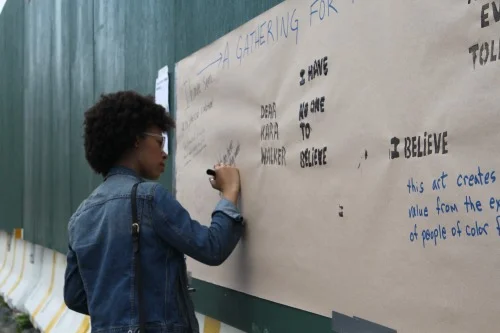 →A GATHERING FOR
I HAVE
NO ONE
TO
BELIEVE
DEAR
KARA
WALKER
I BELIEVE
EV
TOL
this art creates
value from the ex
of people of color f